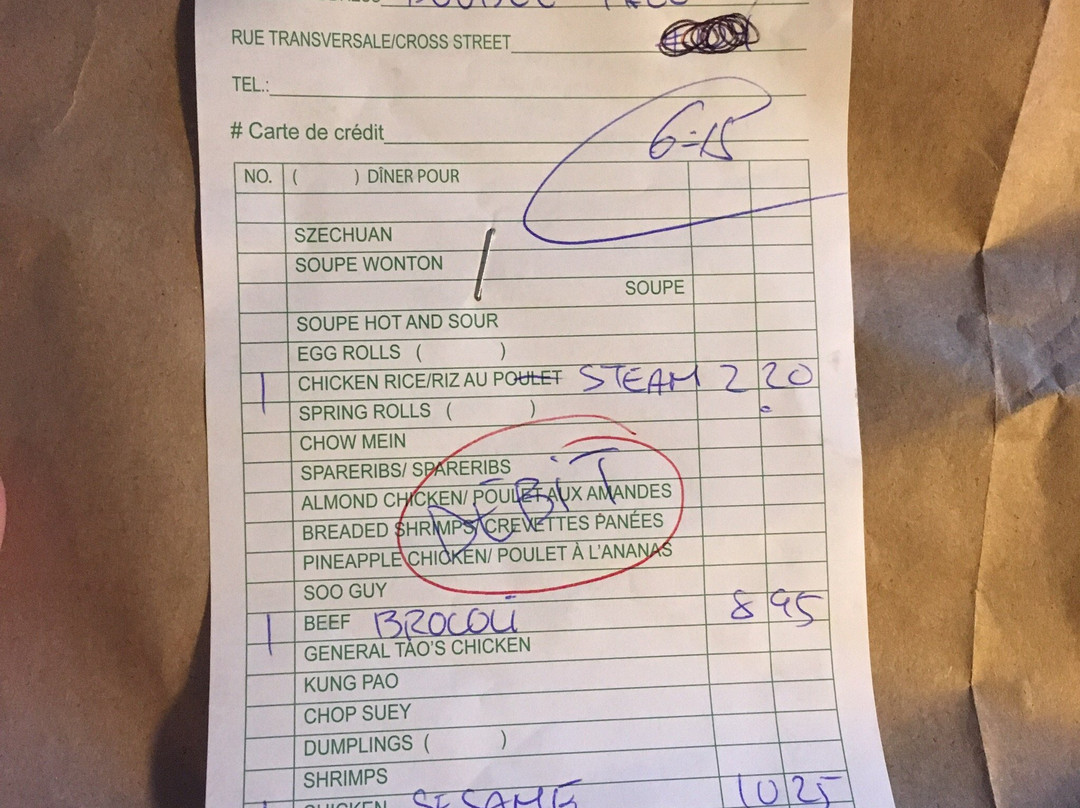 RUE TRANSVERSALE/CROSS STREET
TEL.:
# Carte de crédit
6-15
NO. ( ) DÎNER POUR
SZECHUAN
SOUPE WONTON
SOUPE
SOUPE HOT AND SOUR
EGG ROLLS ( )
1 CHICKEN RICE/RIZ AU POULET STEAM 2 20
SPRING ROLLS ( )
CHOW MEIN
SPARERIBS/ SPARERIBS
ALMOND CHICKEN/ POULET AUX AMANDES
BREADED SHRIMPS/ CREVETTES PANÉES
DÉBIT
PINEAPPLE CHICKEN/ POULET À L'ANANAS
SOO GUY
1 BEEF BROCOLI 8 95
GENERAL TAO'S CHICKEN
KUNG PAO
CHOP SUEY
DUMPLINGS ( )
SHRIMPS
1 CHICKEN SESAME 10 25